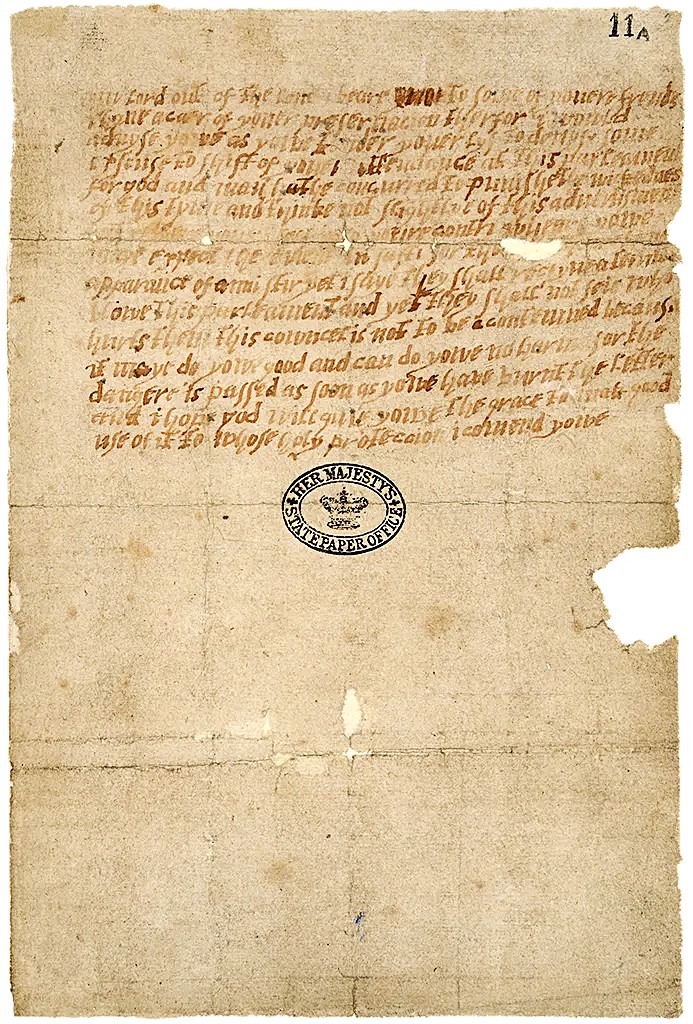 11A
lord out of the love i beare to some of youere frends
i have a caer of youer preservacion therfor i would
advyse yowe as yowe tender youer lyf to devyse some
excuse to shift of youer attendance at this parleament
for god and man hathe concurred to punishe the wickednes
of this tyme and thinke not slightlye of this advertisment
youre contri wheare yowe
maye expect the event in safti for
apparance of anni stir yet i saye they shall receyve a terrible
blowe this parleament and yet they shall not seie who
hurts them this cowncel is not to be contemned because
it maye do yowe good and can do yowe no harme for the
dangere is passed as soon as yowe have burnt the letter
and i hope god will give yowe the grace to mak good
use of it to whose holy proteccion i comend yowe
HER MAJESTY'S
STATE PAPER OFFICE